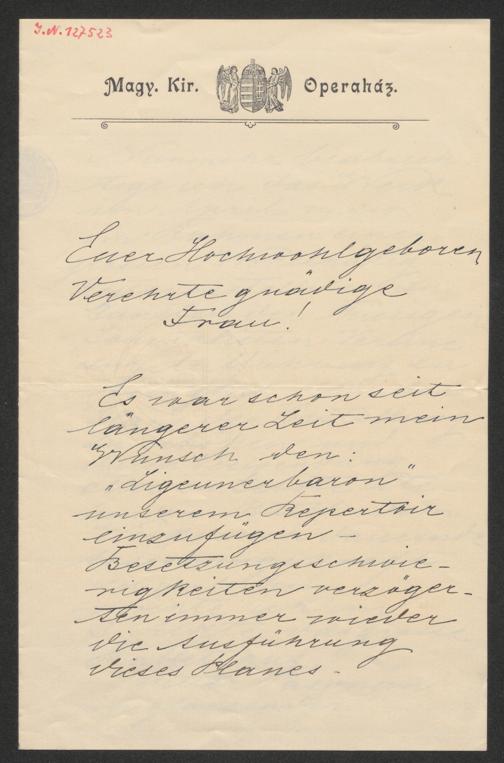 I.N. 127523
Magy. Kir. Operaház.
Euer Hochwohlgeboren,
Verehrte gnädige
Frau!
Es war schon seit
längerer Zeit mein
Wunsch den:
„Zigeunerbaron"
unserem Repertoir
einzufügen –
Besetzungsschwie-
rigkeiten verzöger-
ten immer wieder
die Ausführung
dieses Planes –